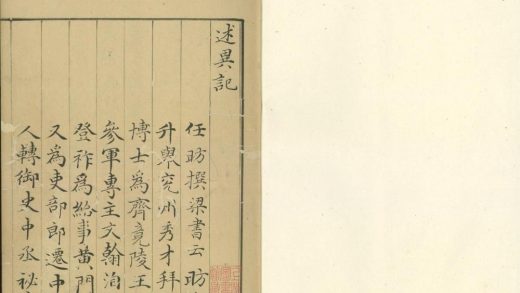 述異記
任昉撰梁書云昉
升舉兖州秀才拜
博士為齊竟陵王
參軍專主文翰洎
登祚為給事黄門
又為吏部郎遷中
人轉御史中丞祕